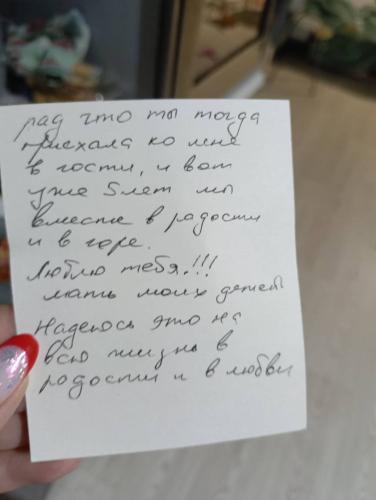 рад что ты тогда
приехала ко мне
в гости, и вот
уже 5 лет мы
вместе в радости
и в горе.
Люблю тебя!!!
мать моих детей
Надеюсь это на
всю жизнь в
радости и в любви